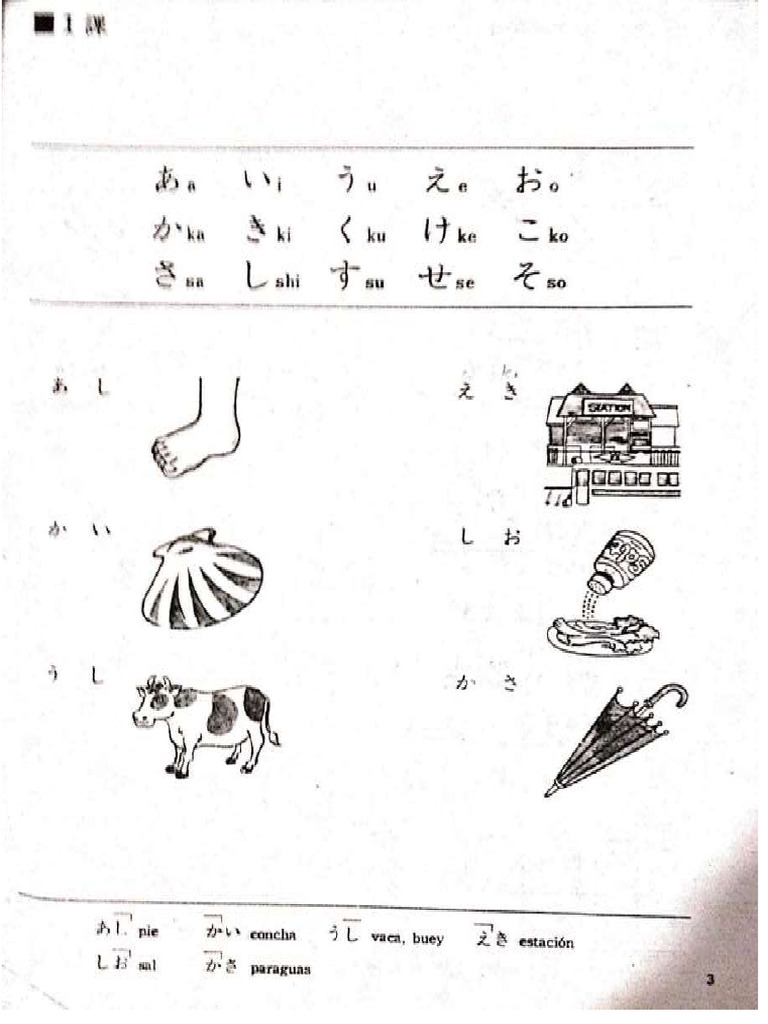 ■ 1 課
あ a い i う u え e お o
か ka き ki く ku け ke こ ko
さ sa し shi す su せ se そ so
あ し
え き
STATION
か い
し お
う し
か さ
あし pie かい concha うし vaca, buey えき estación
しお sal かさ paraguas
3